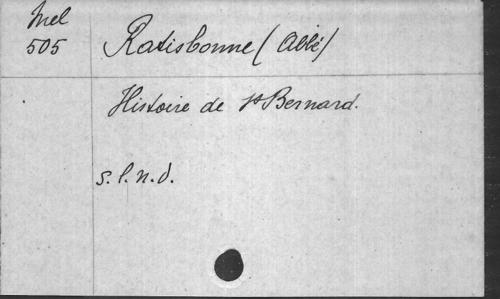 Mel
505
Ratisbonne (Abbé)
Histoire de St Bernard.
s.l.n.d.